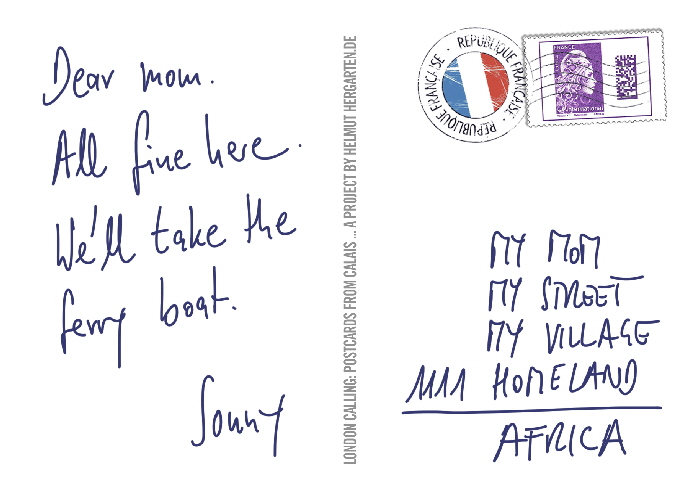 Dear mom.
All fine here.
We'll take the
ferry boat.
Sonny
LONDON CALLING: POSTCARDS FROM CALAIS ... A PROJECT BY HELMUT HERGARTEN.DE
RÉPUBLIQUE FRANÇAISE · RÉPUBLIQUE FRANÇAISE ·
FRANCE
International
MY MOM
MY STREET
MY VILLAGE
1111 HOMELAND
AFRICA